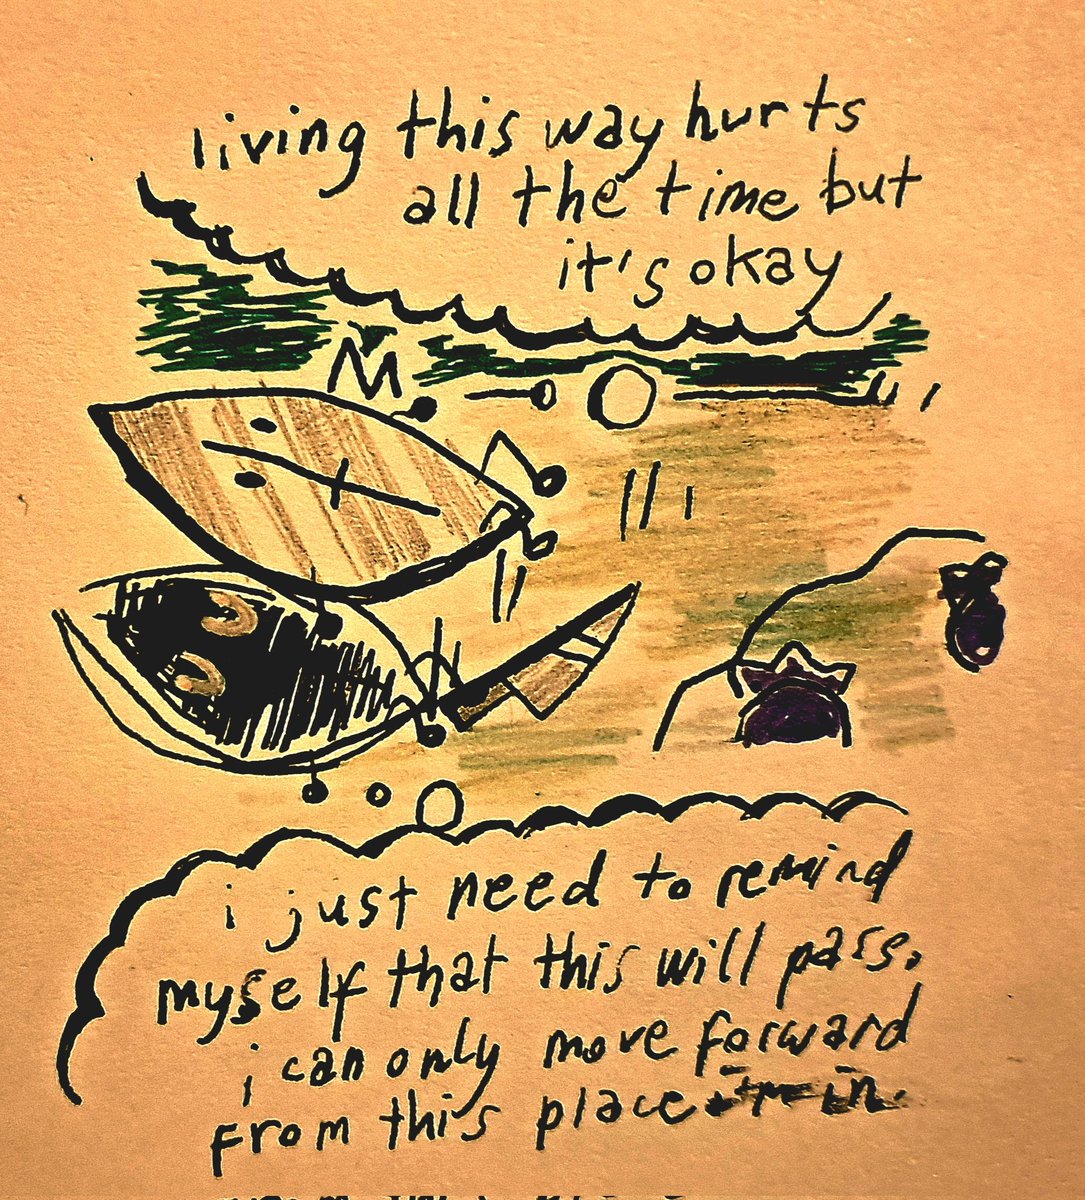 living this way hurts
all the time but
it's okay
i just need to remind
myself that this will pass.
i can only move forward
from this place